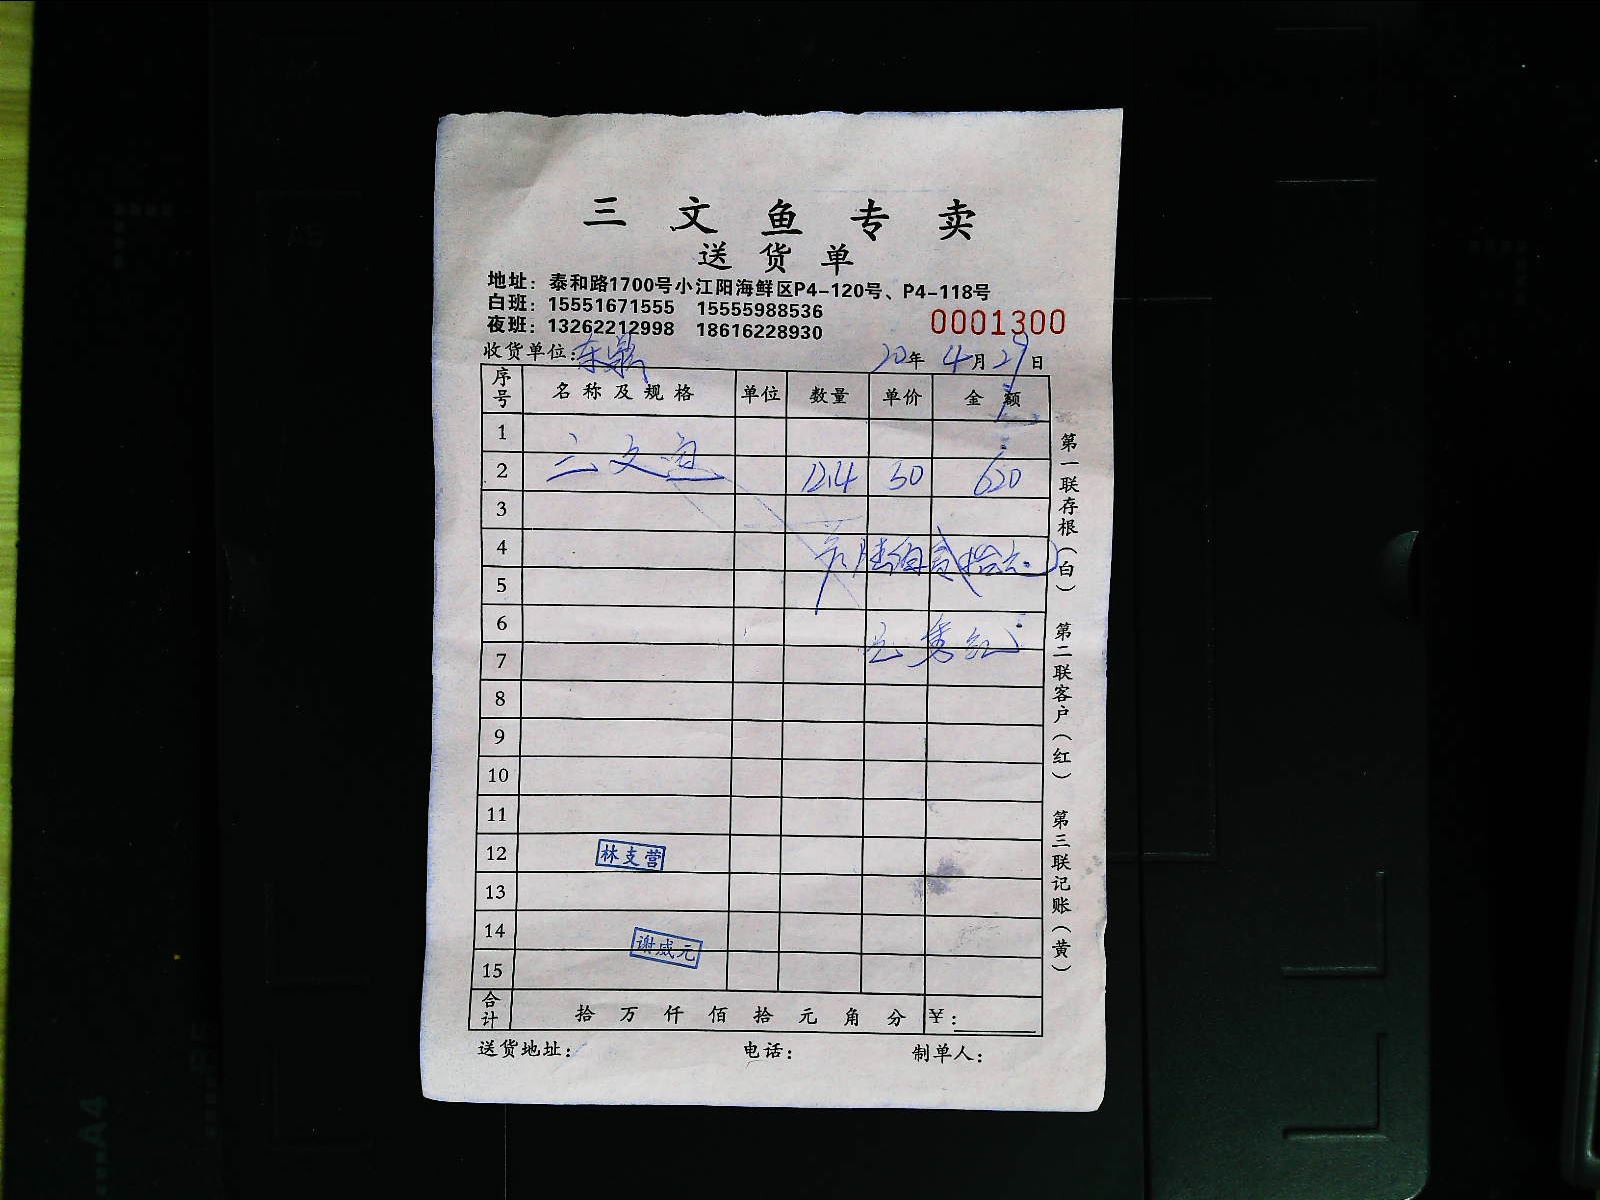 三文鱼专卖
送货单
地址：泰和路1700号小江阳海鲜区P4-120号、P4-118号
白班：15551671555 15555988536
夜班：13262212998 18616228930
0001300
收货单位：东鼎 20年4月29日
序号 名称及规格 单位 数量 单价 金额
1
2 三文鱼 12.4 50 620
3
4 陆佰贰拾元
5
6
7
8
9
10
11
12 林支营
13
14 谢威元
15
合计 拾 万 仟 佰 拾 元 角 分 ￥：
送货地址： 电话： 制单人：
第一联存根（白） 第二联客户（红） 第三联记账（黄）